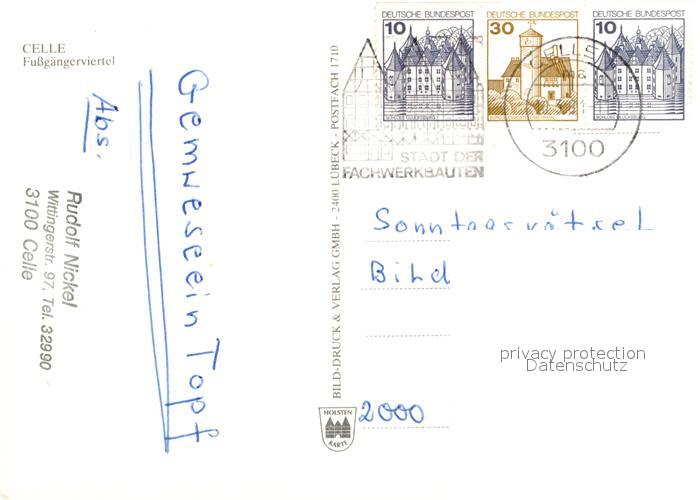 CELLE
Fußgängerviertel
Abs.
Rudolf Nickel
Wittingerstr. 97, Tel. 32990
3100 Celle
Gemweseein Topf
BILD-DRUCK & VERLAG GMBH - 2400 LÜBECK - POSTFACH 1710
HOLSTEN
KARTE
10 DEUTSCHE BUNDESPOST
SCHLOSS GLÜCKSBURG
DEUTSCHE BUNDESPOST
30
DEUTSCHE BUNDESPOST
10
SCHLOSS GLÜCKSBURG
CELLE
3100
STADT DER
FACHWERKBAUTEN
Sonntagsrätsel
Bild
2000
privacy protection
Datenschutz